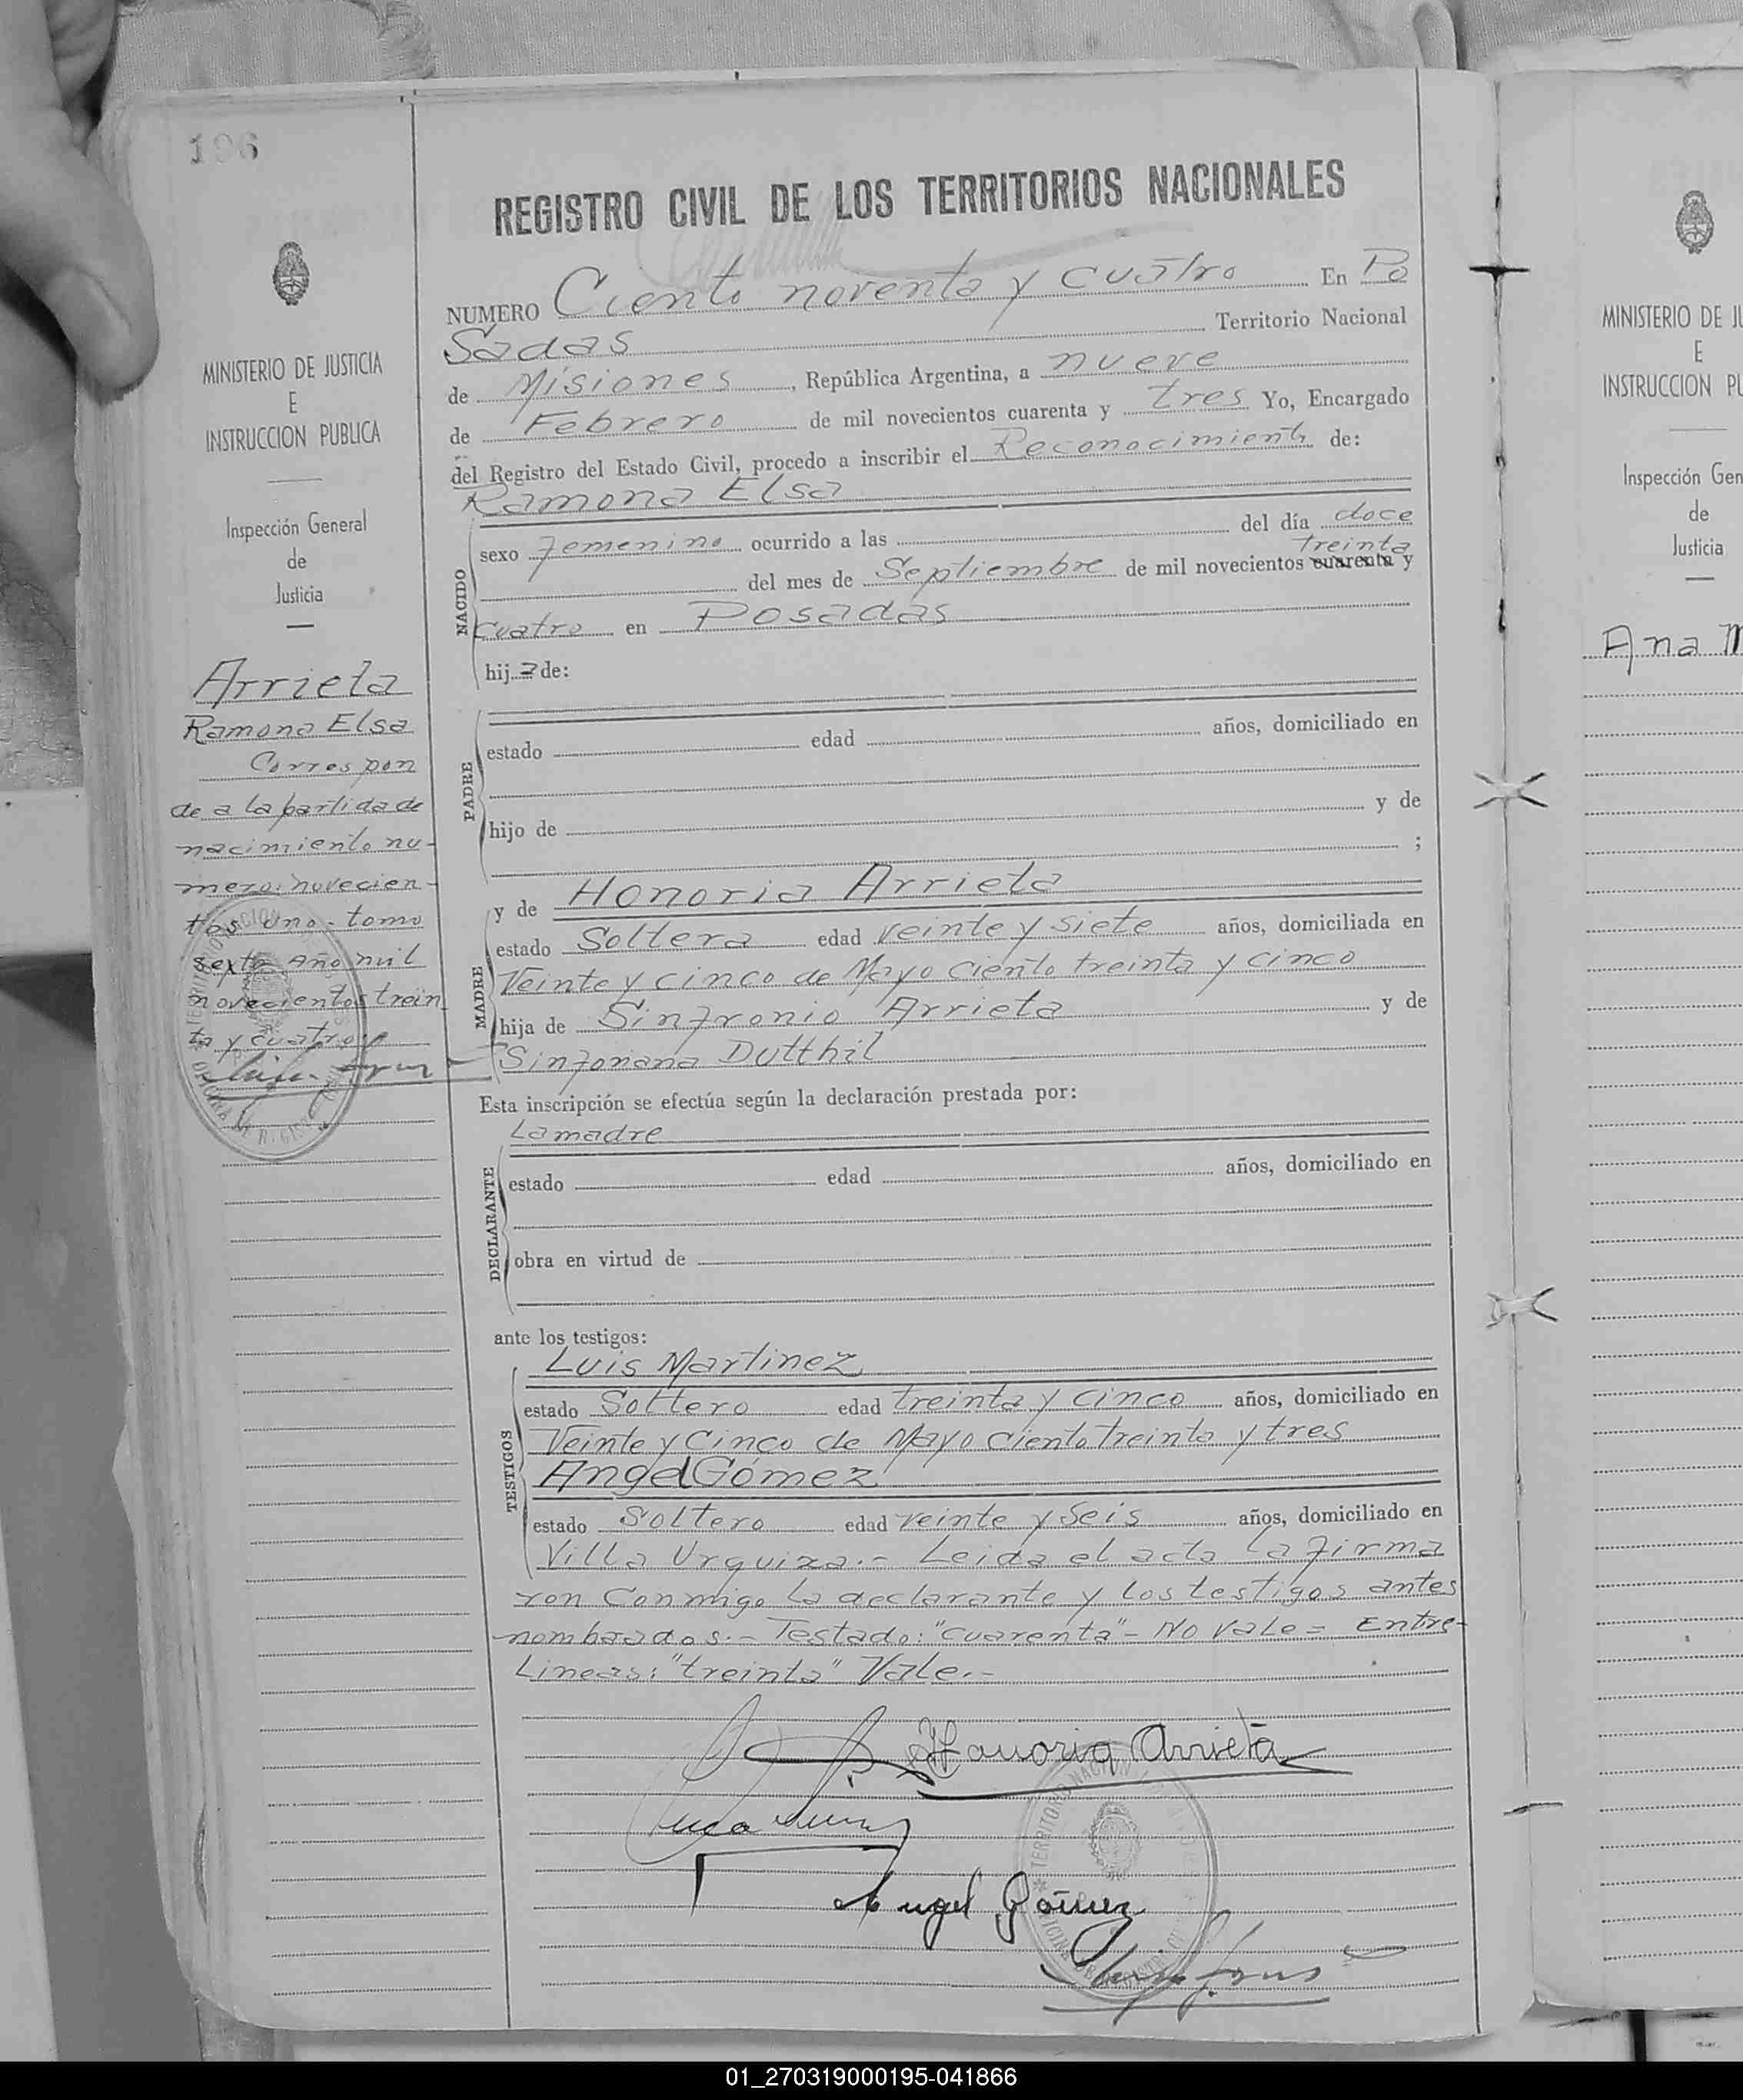 196
MINISTERIO DE JUSTICIA
E
INSTRUCCION PUBLICA
Inspección General
de
Justicia
Arrieta
Ramona Elsa
Correspon
de a la partida de
nacimiento nu-
mero: novecien-
tos uno - tomo
sexto Año mil
novecientos trein
ta y cuatro
REGISTRO CIVIL DE LOS TERRITORIOS NACIONALES
NUMERO Ciento noventa y cuatro En Po
Sadas Territorio Nacional
de Misiones, República Argentina, a nueve
de Febrero de mil novecientos cuarenta y tres Yo, Encargado
del Registro del Estado Civil, procedo a inscribir el Reconocimiento de:
Ramona Elsa
NACIDO
sexo femenino ocurrido a las del día doce
treinta
del mes de Septiembre de mil novecientos cuarenta y
cuatro en Posadas
hija de:
PADRE
estado edad años, domiciliado en
hijo de y de
;
MADRE
y de Honoria Arrieta
estado Soltera edad veinte y siete años, domiciliada en
Veinte y cinco de Mayo ciento treinta y cinco
hija de Sinfronio Arrieta y de
Sinforiana Dutthil
Esta inscripción se efectúa según la declaración prestada por:
La madre
DECLARANTE
estado edad años, domiciliado en
obra en virtud de
ante los testigos:
TESTIGOS
Luis Martinez
estado Soltero edad treinta y cinco años, domiciliado en
Veinte y Cinco de Mayo ciento treinta y tres
Angel Gómez
estado Soltero edad veinte y seis años, domiciliado en
Villa Urquiza.- Leida el acta la firma
ron conmigo la declarante y los testigos antes
nombrados.- Testado: "cuarenta" - No vale = Entre-
Lineas: "treinta" Vale.-
Honoria Arrieta
Angel Gómez
MINISTERIO DE JU
E
INSTRUCCION PU
Inspección Gen
de
Justicia
Ana M
01_270319000195-041866